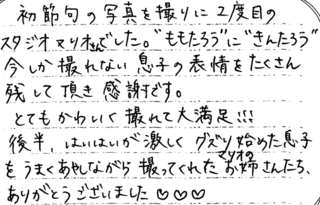 初節句の写真を撮りに2度目の
スタジオマリオさんでした。“ももたろう”に“きんたろう”
今しか撮れない息子の表情をたくさん
残して頂き感謝です。
とてもかわいく撮れて大満足!!!
後半、はいはいが激しくグズり始めた息子
をうまくあやしながら撮ってくれたマリオのお姉さんたち、
ありがとうございました♡♡♡